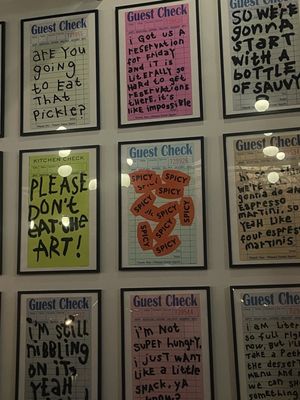 Guest Check
are you
going
to Eat
That
Pickle?
Guest Check
i Got us A
reservation
for Friday
and it is
Literally so
Hard to get
reservations
there, it's
like impossible
So we're
gonna
START
WITH A
BOTTLE
OF SAUV
KITCHEN CHECK
PLEASE
DON'T
eat the
ART!
Guest Check
SPICY
SPICY
SPICY
SPICY
SPICY
SPICY
SPICY
SPICY
SPICY
Guest Check
gonna do an
Espresso
martini, so
yeah Like
four espresso
martinis
Guest Check
i'm still
nibbling
on it,
YEAH
Guest Check
i'm Not
super hungry,
i just want
like a little
snack, yA
know?
Guest Check
i am Literally
so full right
now, But i'll
take a Peek
the dessert
menu and
we can
something